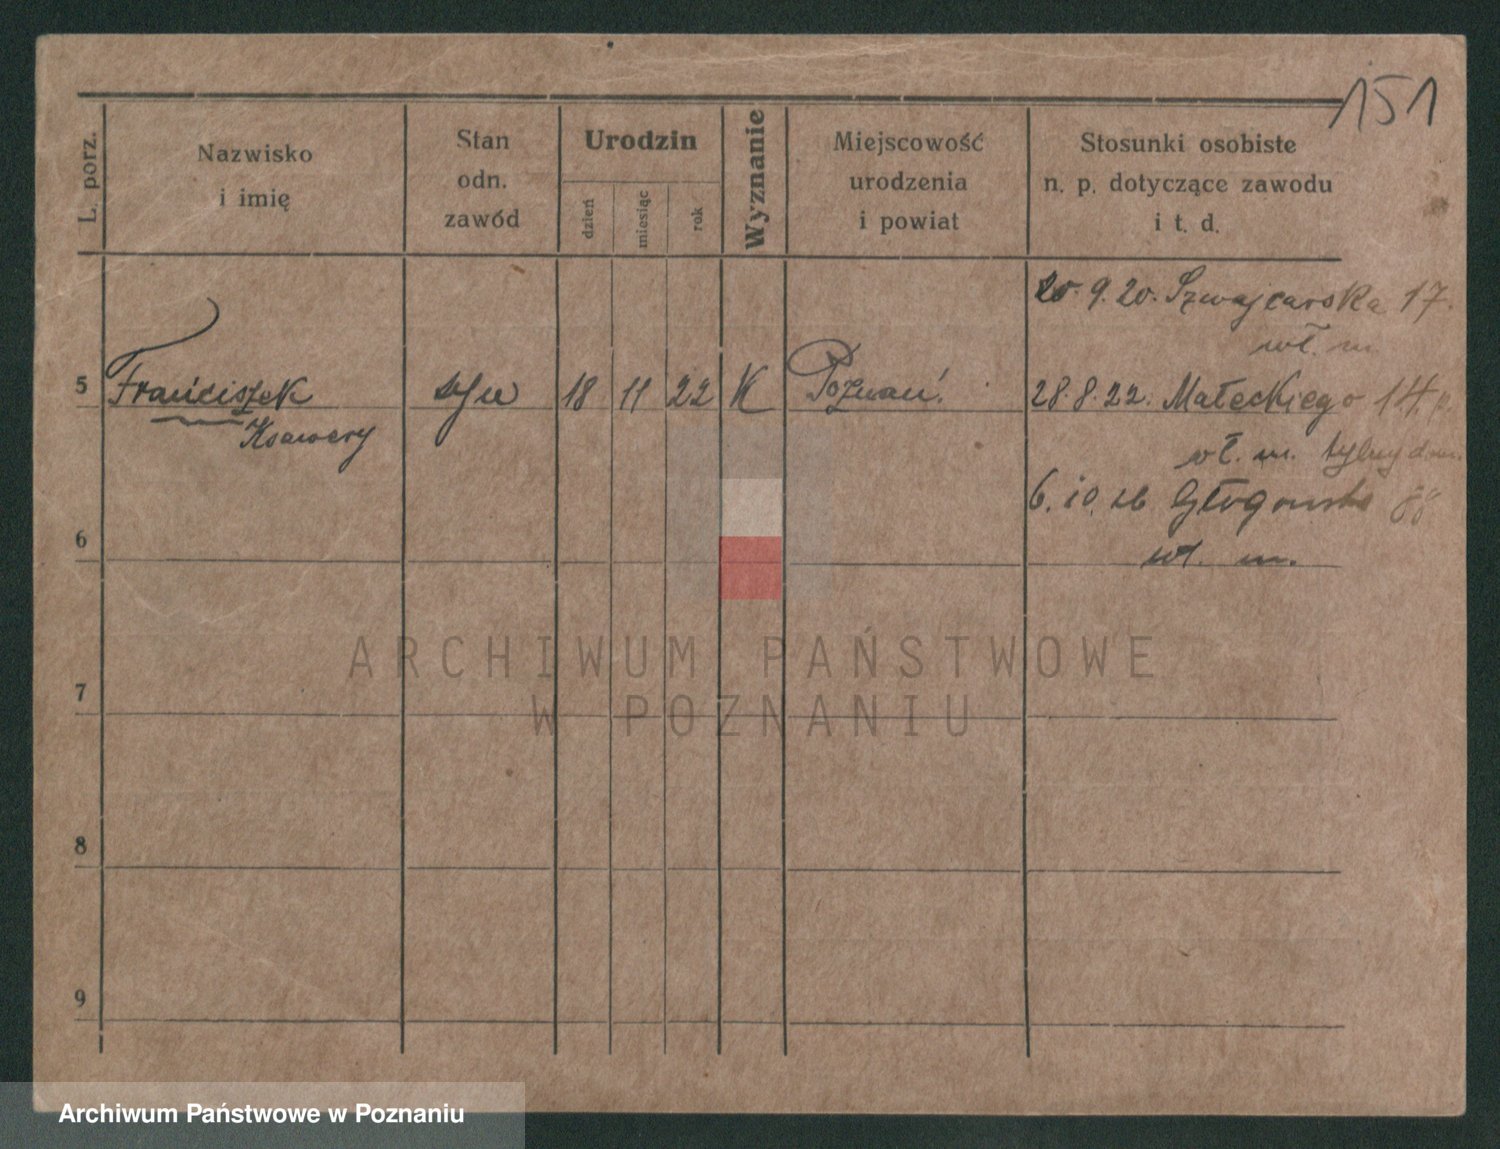 151
L. porz.
Nazwisko
i imię
Stan
odn.
zawód
Urodzin
dzień
miesiąc
rok
Wyznanie
Miejscowość
urodzenia
i powiat
Stosunki osobiste
n. p. dotyczące zawodu
i t. d.
20. 9. 20. Szwajcarska 17.
wł. m.
5 Franciszek 18 11 22 K Poznań. 28. 8. 22. Małeckiego 14.
Ksawery
wł. m. tylny dom.
6. 10. 26 Głogowska
6
wł. m.
7
8
9
ARCHIWUM PAŃSTWOWE
W POZNANIU
Archiwum Państwowe w Poznaniu